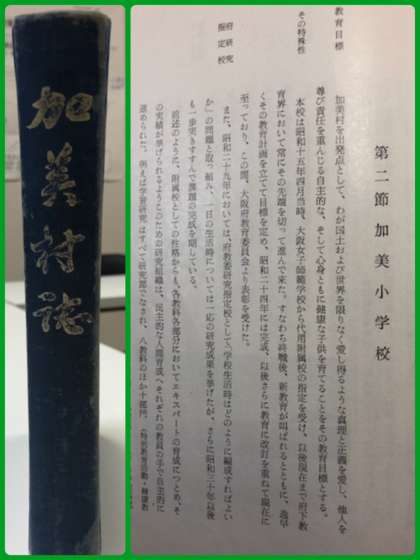 加美村誌
教育目標
その特殊性
府研究
指定校
第二節 加美小学校
加美村を出発点として、わが国土および世界を限りなく愛し得るような真理と正義を愛し、他人を
尊び責任を重んじる自主的な、そして心身ともに健康な子供を育てることをその教育目標とする。
本校は昭和十五年四月当時、大阪女子師範学校から代用附属校の指定を受け、以後現在まで府下教
育界において常にその先端を切って進んで来た。すなわち終戦後、新教育が叫ばれるとともに、逸早
くその教育計画を立てて目標を定め、昭和二十四年には完成、以後さらに教育に改訂を重ねて現在に
至っており、この間、大阪府教育委員会より表彰を受けた。
また、昭和二十九年においては、府教委研究指定校として「学校生活時はどのように編成すればよい
か」の問題と取っ組み、一日の生活時については一応の研究成果を挙げたが、さらに昭和三十年以後
も一歩つきすすんで課題の完成を期している。
前述のように、附属校としての性格からも、各教科各部分においてエキスパートの育成につとめ、そ
の実績が挙げられるようこのための研究組織は、民主的な人間育成へそれぞれの教員の手で自主的に
進められた。例えば学習研究はすべて研究部でなされ、八教科のほか十部門、(特別教育活動・健康教